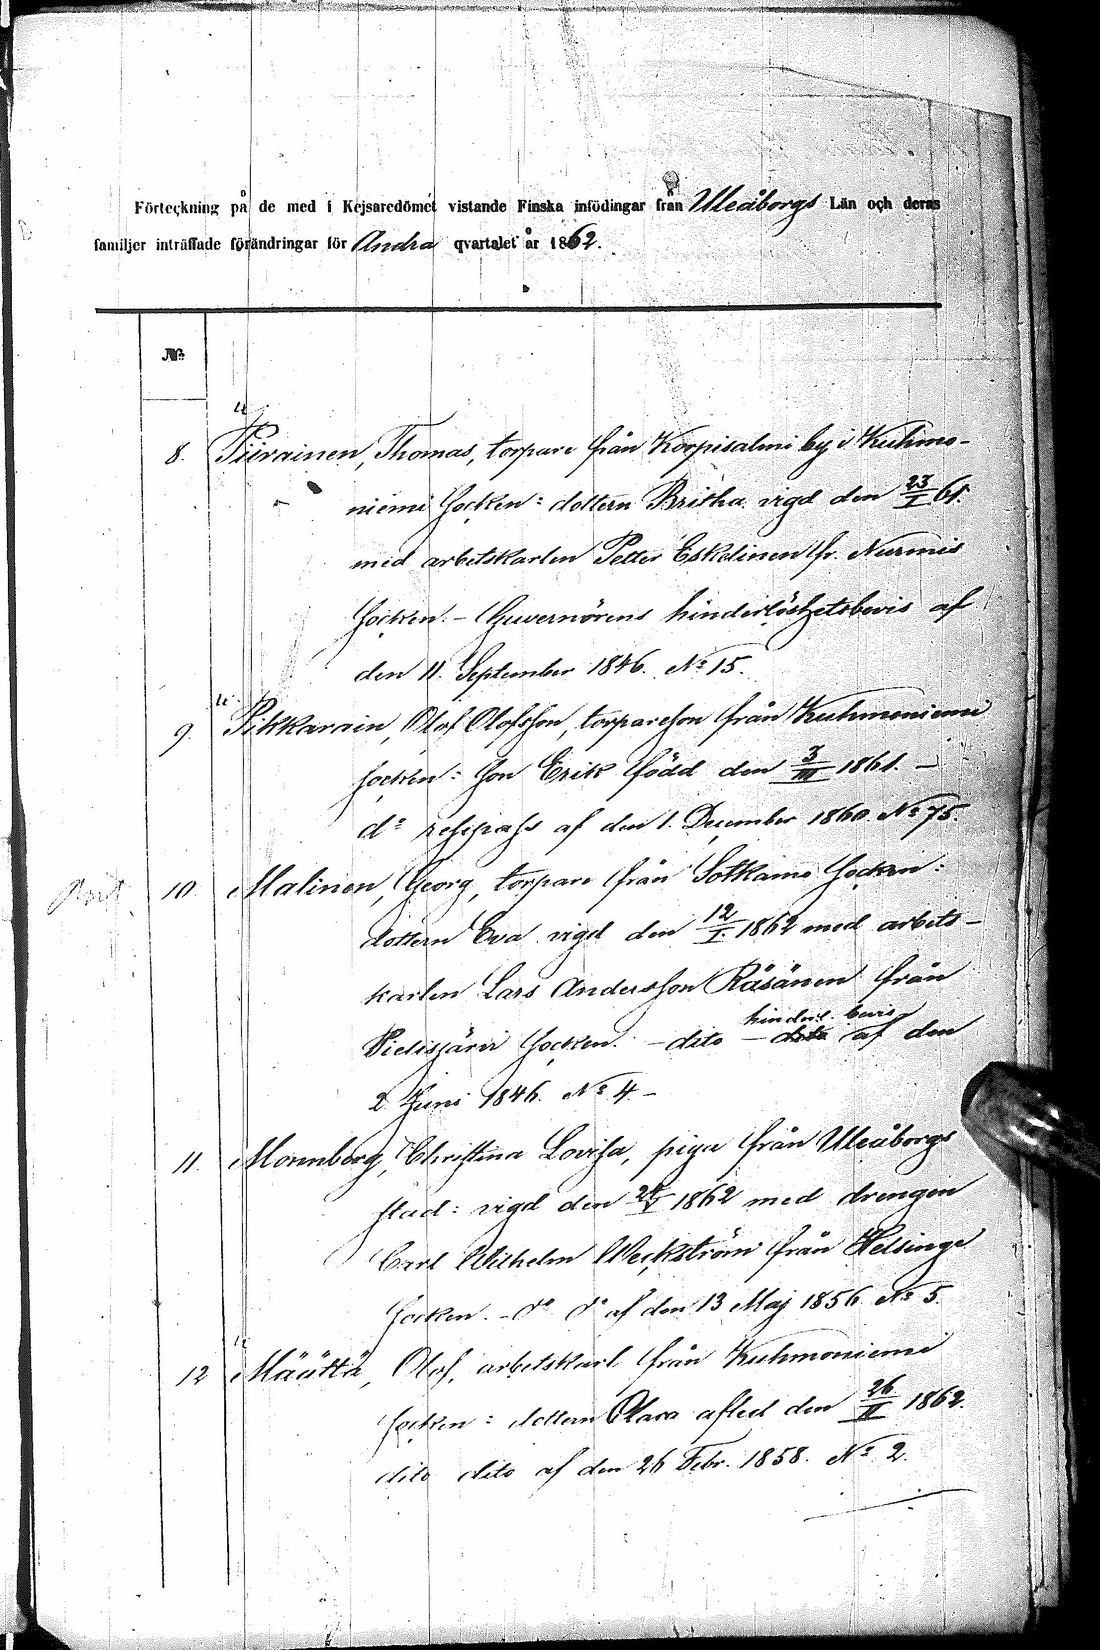 Förteckning på de med i Kejsaredömet vistande Finska infödingar från Uleåborgs Län och deras
familjer inträffade förändringar för Andra qvartalet år 1862.
No
8. Piirainen, Thomas, torpare från Korpisalmi by i Kuhmo-
niemi Socken: dottern Britha vigd den 23/I 61.
med arbetskarlen Petter Eskelinen fr. Nurmis
Socken. - Guvernörens hinderlöshetsbevis af
den 11. September 1846. No 15.
9. Pikkarain, Olof Olofsson, torpareson från Kuhmoniemi
Socken: son Erik född den 3/III 1861. -
do respass af den 1. December 1860. No 75.
10. Malinen, Georg, torpare från Sotkamo Socken:
dottern Eva vigd den 12/I. 1862 med arbets-
karlen Lars Andersson Räsänen från
Pielisjärvi Socken. - dito - hinderl. bevis af den
2. Juni 1846. No 4 -
11. Monnberg, Christina Lovisa, piga från Uleåborgs
stad: vigd den 1862 med drengen
Carl Wilhelm Weckström från Helsinge
Socken. - do do af den 13 Maj 1856 No 5.
12 Määttä, Olof, arbetskarl från Kuhmoniemi
Socken: dottern afled den 26/II 1862.
dito dito af den 26 Febr. 1858. No 2.